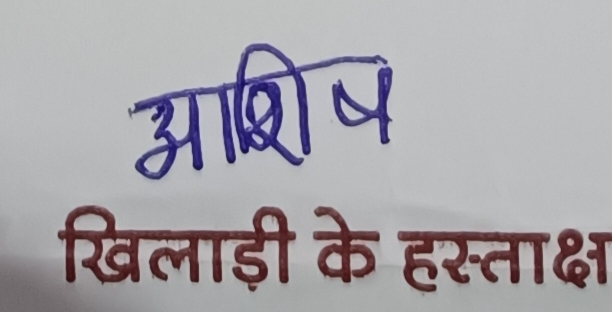 आशिष
खिलाड़ी के हस्ताक्ष